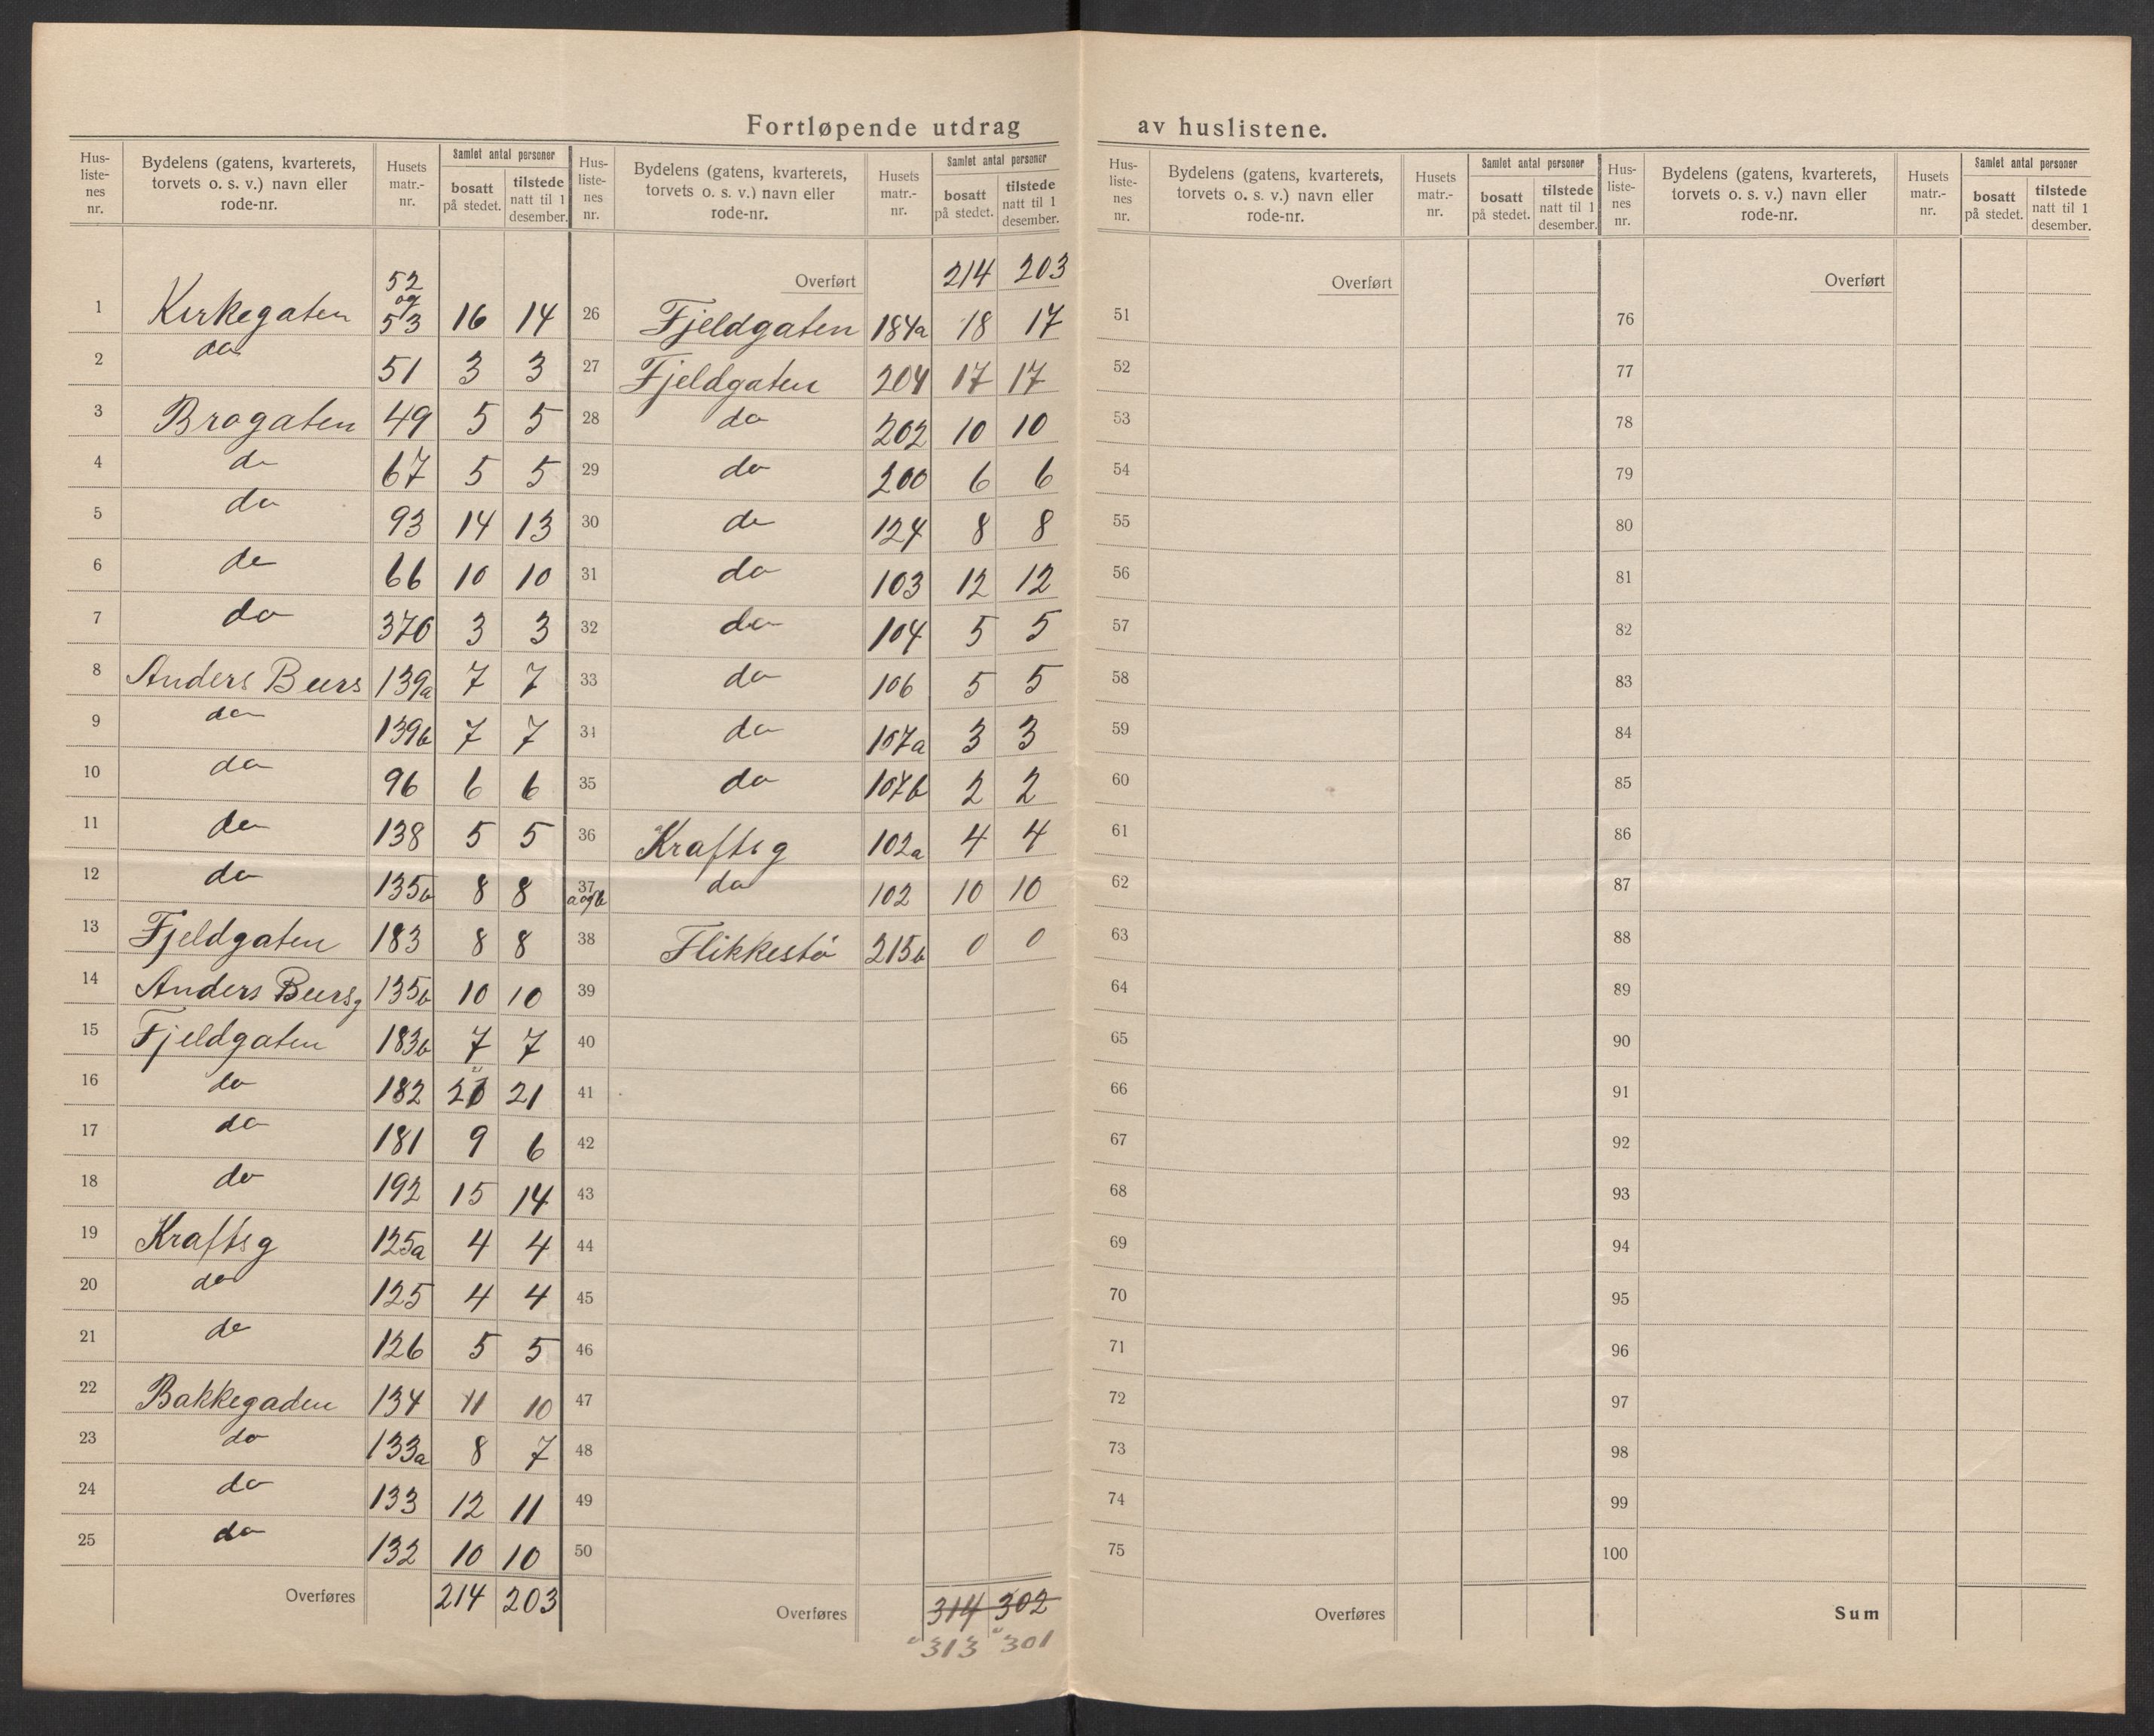 Fortløpende utdrag av huslistene.
Hus-listenes nr. Bydelens (gatens, kvarterets, torvets o. s. v.) navn eller rode-nr. Husets matr.-nr. Samlet antal personer bosatt på stedet. tilstede natt til 1 desember.
1 Kirkegaten 52 og 53 16 14
2 do 51 3 3
3 Brogaten 49 5 5
4 do 67 5 5
5 do 93 14 13
6 do 66 10 10
7 do 370 3 3
8 Anders Beers 139a 7 7
9 do 139b 7 7
10 do 96 6 6
11 do 138 5 5
12 do 135b 8 8
13 Fjeldgaten 183 8 8
14 Anders Beersg 135b 10 10
15 Fjeldgaten 183b 7 7
16 do 182 21
17 do 181 9 6
18 do 192 15 14
19 Kraftsg 125a 4 4
20 do 125 4 4
21 do 126 5 5
22 Bakkegaden 134 11 10
23 do 133a 8 7
24 do 133 12 11
25 do 132 10 10
Overføres 214 203
Hus-listenes nr. Bydelens (gatens, kvarterets, torvets o. s. v.) navn eller rode-nr. Husets matr.-nr. Samlet antal personer bosatt på stedet. tilstede natt til 1 desember.
Overført 214 203
26 Fjeldgaten 184a 18 17
27 Fjeldgaten 204 17 17
28 do 202 10 10
29 do 200 6 6
30 do 124 8 8
31 do 103 12 12
32 do 104 5 5
33 do 106 5 5
34 do 107a 3 3
35 do 107b 2 2
36 Kraftsg 102a 4 4
37 a og b do 102 10 10
38 Flikkestø 215b 0 0
39
40
41
42
43
44
45
46
47
48
49
50
Overføres 314 302
313 301
Hus-listenes nr. Bydelens (gatens, kvarterets, torvets o. s. v.) navn eller rode-nr. Husets matr.-nr. Samlet antal personer bosatt på stedet. tilstede natt til 1 desember.
Overført
51
52
53
54
55
56
57
58
59
60
61
62
63
64
65
66
67
68
69
70
71
72
73
74
75
Overføres
Hus-listenes nr. Bydelens (gatens, kvarterets, torvets o. s. v.) navn eller rode-nr. Husets matr.-nr. Samlet antal personer bosatt på stedet. tilstede natt til 1 desember.
Overført
76
77
78
79
80
81
82
83
84
85
86
87
88
89
90
91
92
93
94
95
96
97
98
99
100
Sum